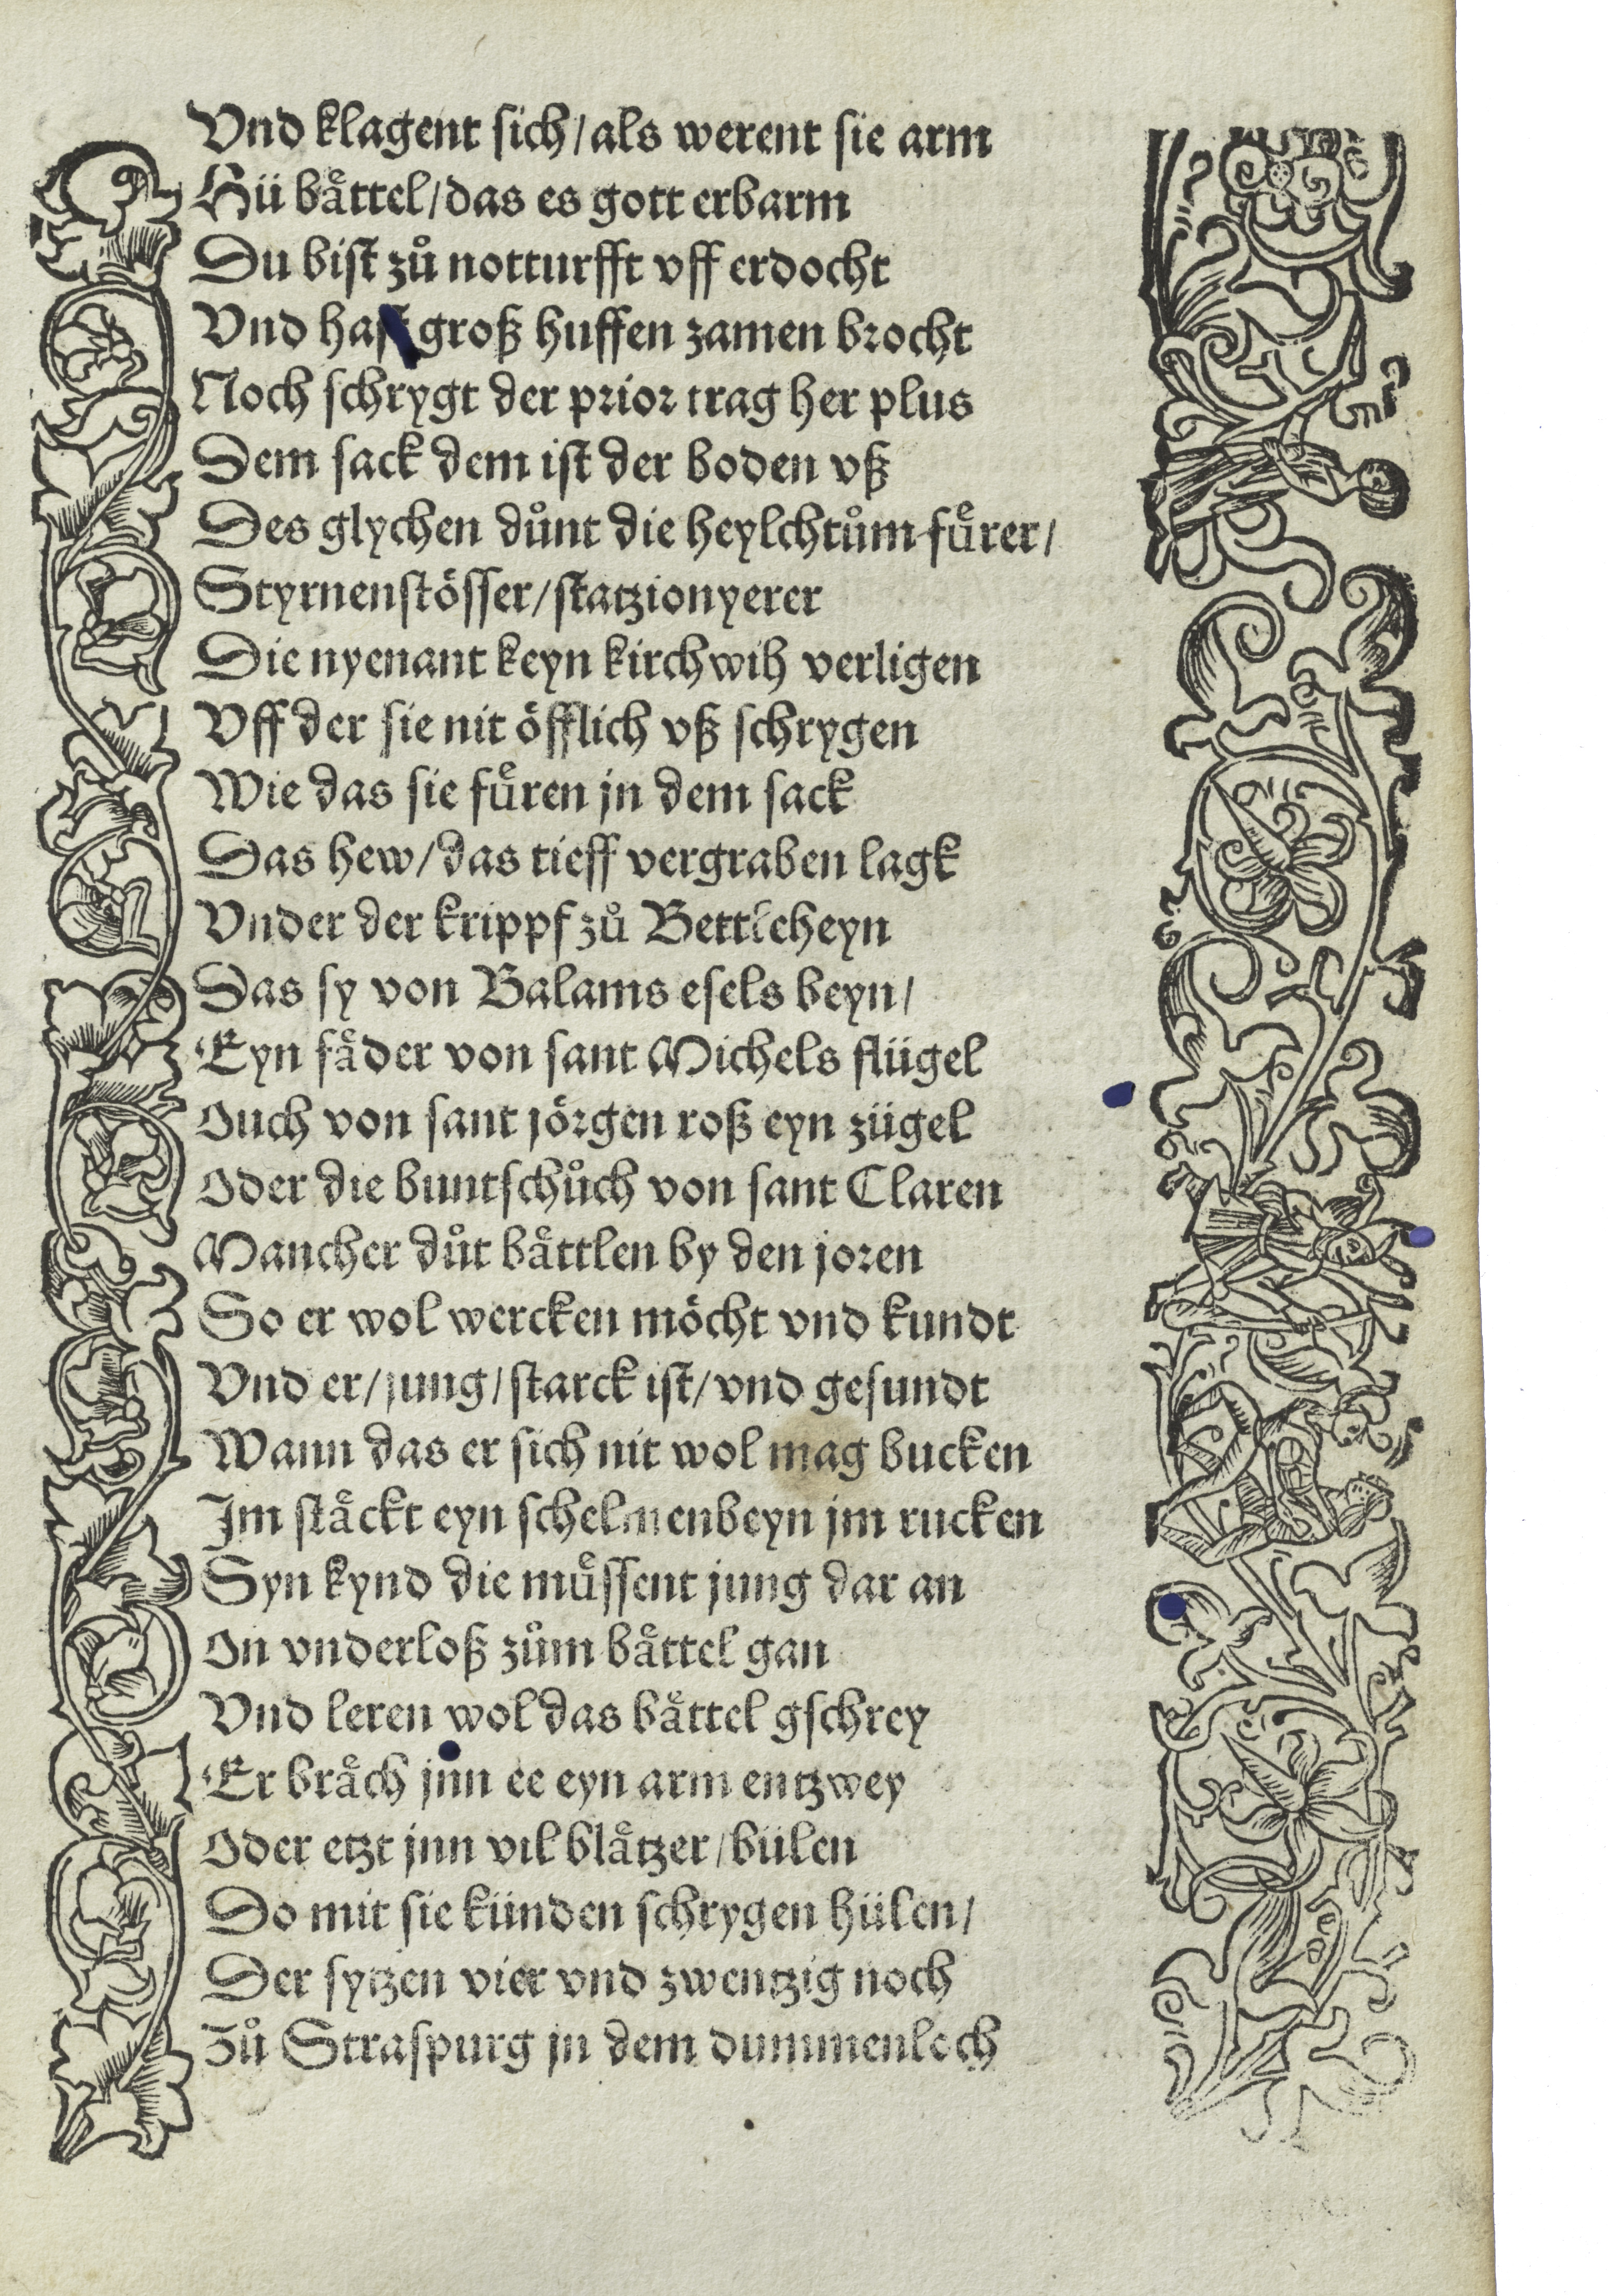 Vnd klagent sich/als werent sie arm
Hü baͤttel/das es gott erbarm
Du bist zuͦ notturfft vff erdocht
Vnd hast groß huffen zamen brocht
Noch schrygt der prior trag her plus
Dem sack dem ist der boden vß
Des glychen duͦnt die heylchtuͦm fuͤrer/
Styrnenstoͤsser/statzionyerer
Die nyenant keyn kirchwih verligen
Vff der sie nit oͤfflich vß schrygen
Wie das sie fuͤren jn dem sack
Das hew/das tieff vergraben lagk
Vnder der krippf zuͦ Bettleheyn
Das sy von Balams esels beyn/
Eyn faͤder von sant Michels flügel
Ouch von sant joͤrgen roß eyn zügel
Oder die buntschuͦch von sant Claren
Mancher duͦt baͤttlen by den joren
So er wol wercken moͤcht vnd kundt
Vnd er/jung/starck ist/vnd gesundt
Wann das er sich nit wol mag bucken
Im staͤckt eyn schelmenbeyn jm rucken
Syn kynd die muͤssent jung dar an
On vnderloß zuͦm baͤttel gan
Vnd leren wol das baͤttel gschrey
Er braͤch jnn ee eyn arm entzwey
Oder etzt jnn vil blaͤtzer/bülen
Do mit sie künden schrygen hülen/
Der sytzen vier vnd zwentzig noch
Zuͦ Straspurg jn dem dummenloch